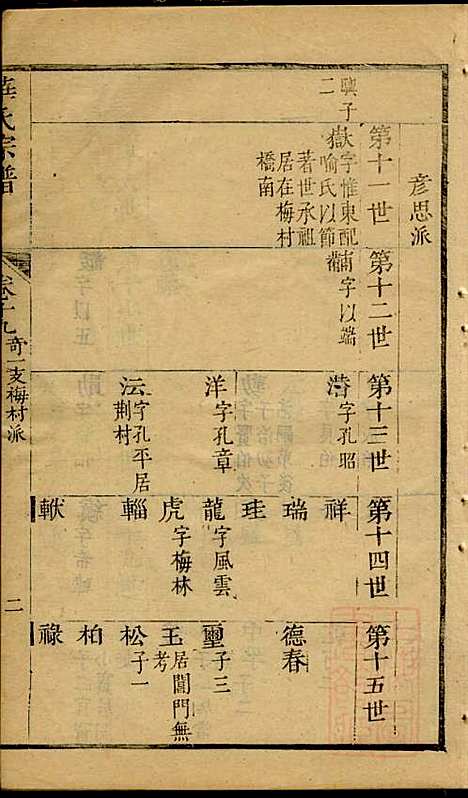 彦思派
第十一世
第十二世
第十三世
第十四世
第十五世
子二
嶽 字惟東配
喻氏以節
著世承祖
居在梅村
橋南
字以端
潜 字孔昭
洋 字孔章
沄 字孔平居
荆村
祥
瑞
珪
龍 字風雲
虎 字梅林
輜
獻
德春
璽 子三
玉 居閶門無
考
松 子一
柏
祿
氏宗譜
卷十九
奇一支梅村派
二